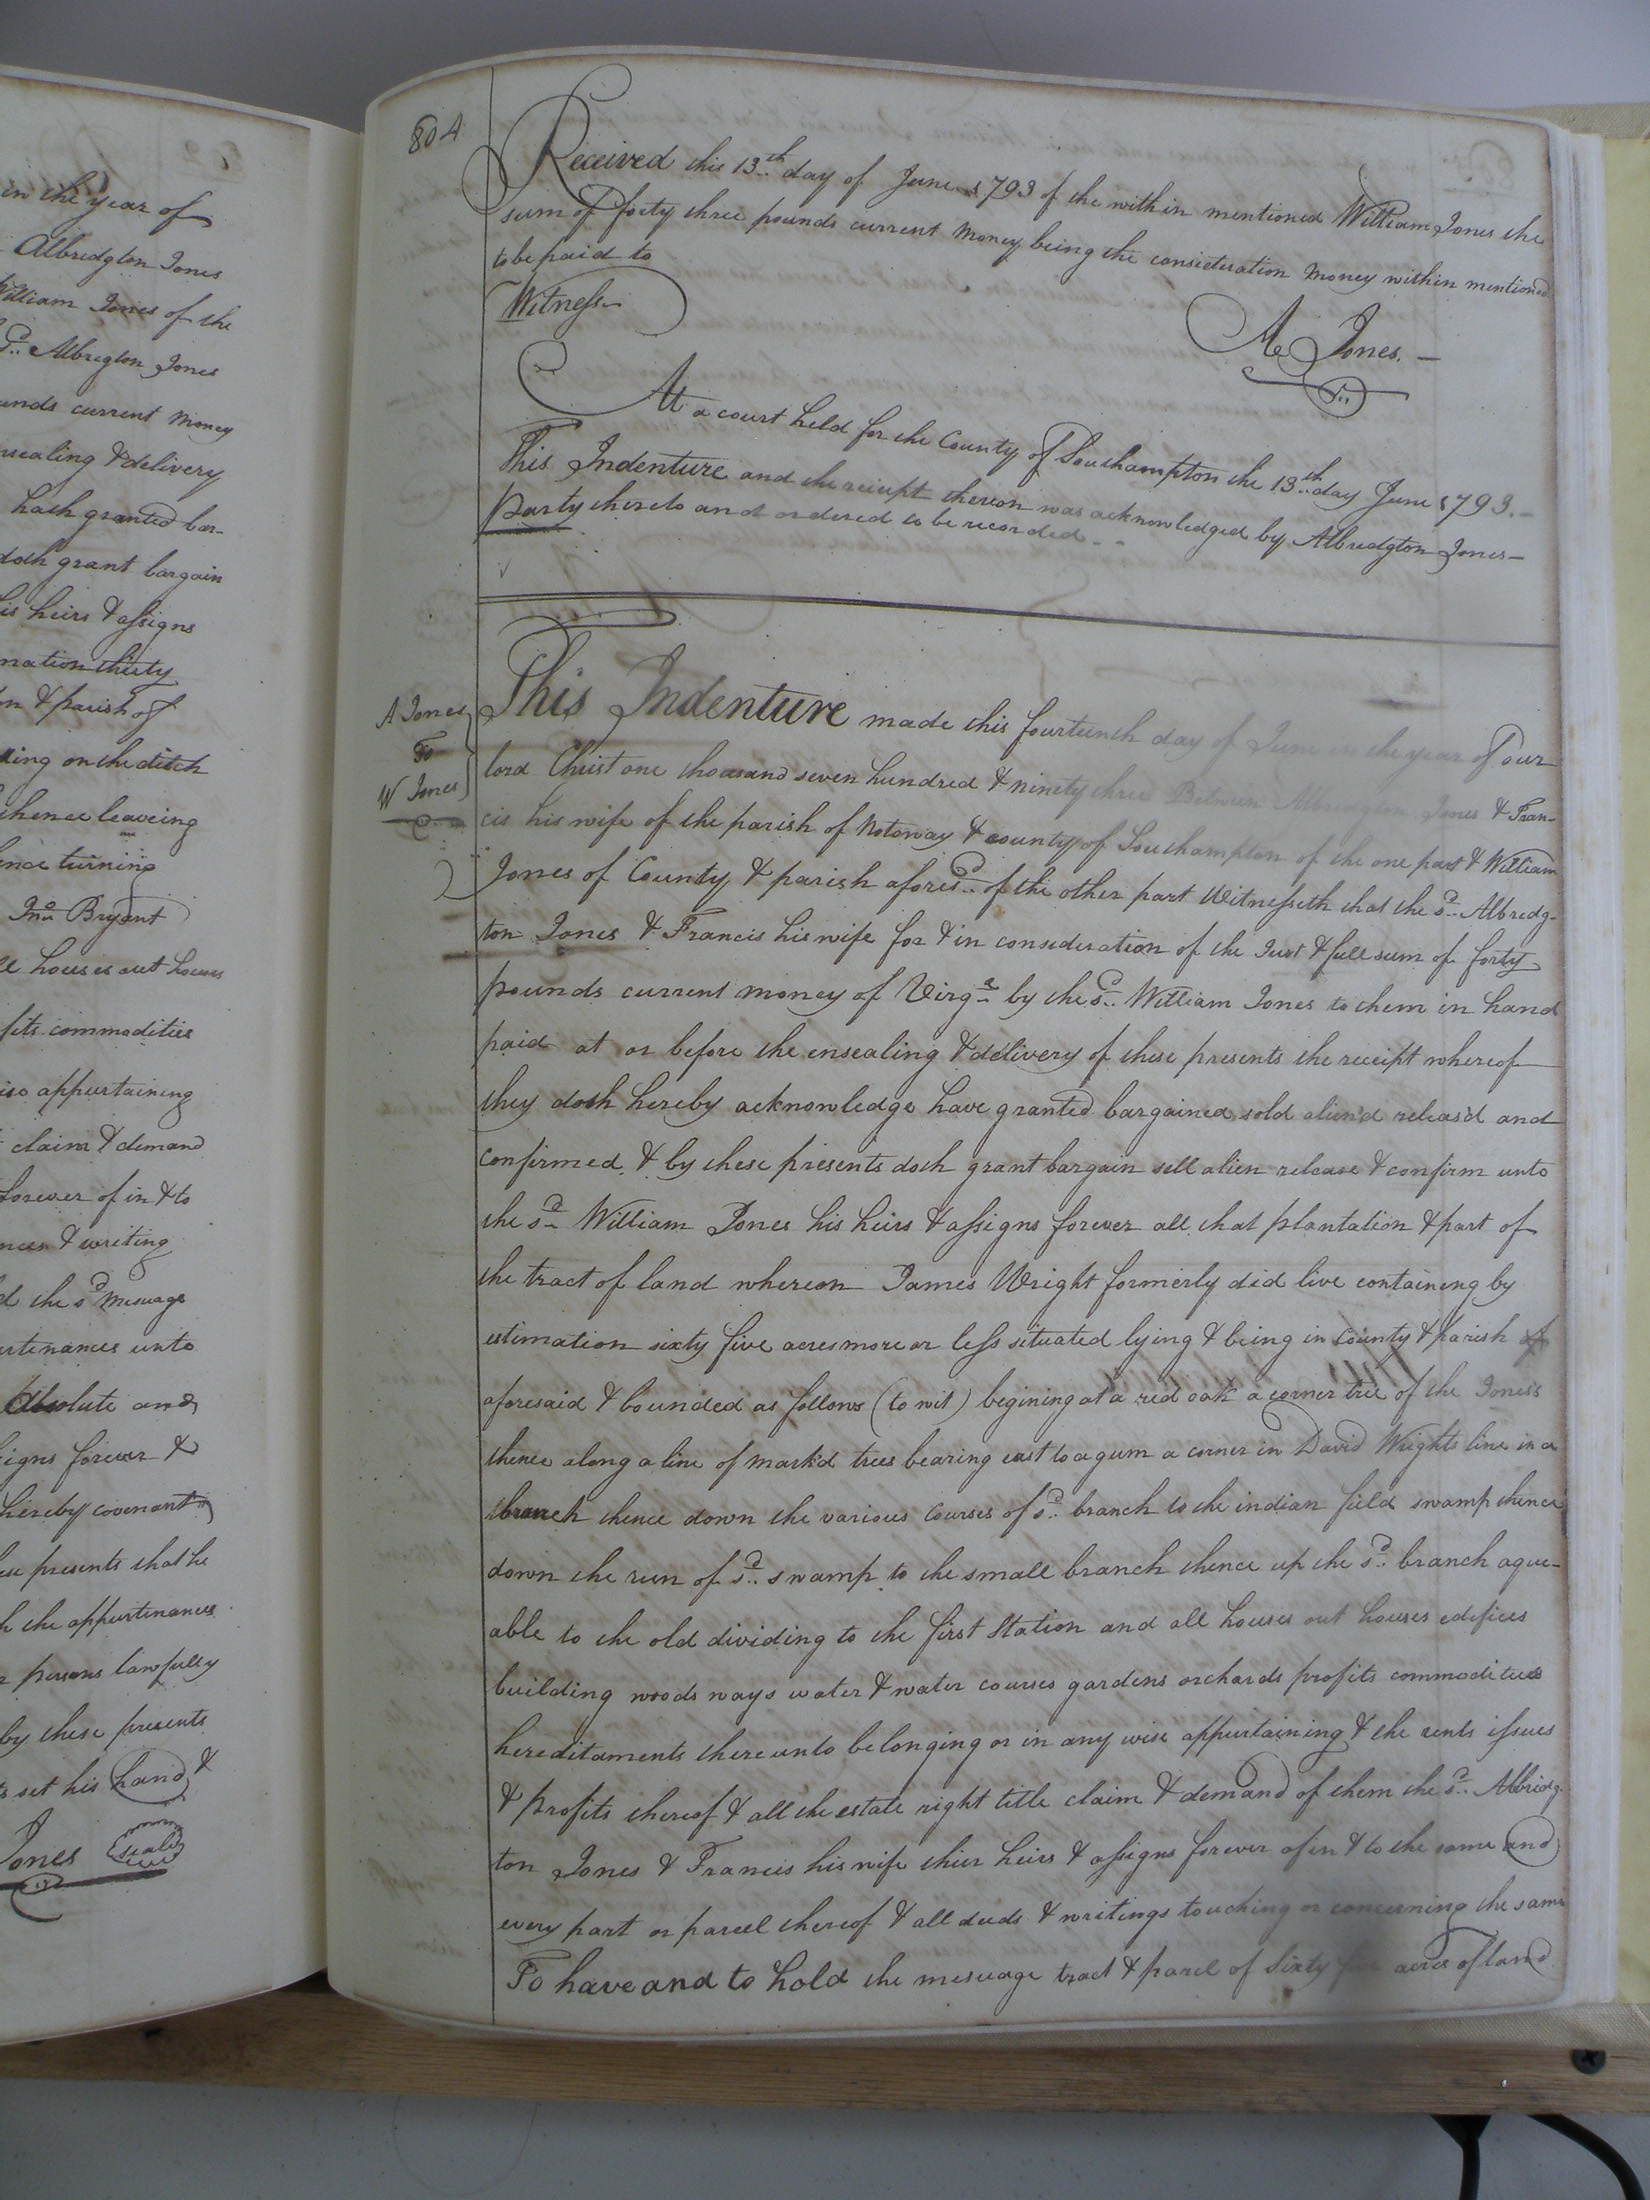 in the year of
Albredgton Jones
William Jones of the
sd. Albregton Jones
unds current money
nsealing & delivery
hath granted bar-
doth grant bargain
is heirs & assigns
mation thirty
on & parish of
ning on the ditch
thence leaveing
ence turning
Jno. Bryant
ll houses out houses
fits commodities
ise appurtaining
claim & demand
forever of in & to
nces & writing
d the sd. mesuage
urtenances unto
Absolute and
signs forever &
hereby covenant
ese presents that he
h the appurtenances
r persons lawfully
by these presents
s set his hand &
Jones seal
804
Received this 13th day of June 1793 of the within mentioned William Jones the
sum of forty three pounds current money being the consideration money within mentioned
to be paid to
Witness
A Jones.
At a court held for the County of Southampton the 13th day June 1793.
This Indenture and the receipt thereon was acknowledged by Albredgton Jones
party thereto and ordered to be recorded
A Jones
To
W Jones
This Indenture made this fourteenth day of June in the year of our
lord Christ one thoasand seven hundred & ninety three Between Albredgton Jones & Fran-
cis his wife of the parish of Notoway & county of Southampton of the one part & William
Jones of County & parish aforesd. of the other part Witnesseth that the sd. Albredg-
ton Jones & Francis his wife for & in consideration of the Just & full sum of forty
pounds current money of Virga. by the sd. William Jones to them in hand
paid at or before the ensealing & delivery of these presents the receipt whereof
they doth hereby acknowledge have granted bargained sold alien'd releas'd and
confirmed & by these presents doth grant bargain sell alien release & confirm unto
the sd. William Jones his heirs & assigns forever all that plantation & part of
the tract of land whereon James Wright formerly did live containeng by
estimation sixty five acres more or less situated lying & being in County & parish of
aforesaid & bounded as follows (to wit) begining at a red oak a corner tree of the Jones's
thence along a line of mark'd trees bearing east to a gum a corner in David Wrights line in a
branch thence down the various courses of sd. branch to the indian field swamp thence
down the run of sd. swamp to the small branch thence up the sd. branch agree-
able to the old dividing to the first Station and all houses out houses edifices
building woods ways water & water courses gardens orchards profits commodities
hereditaments thereunto belonging or in any wise appurtaining & the rents issues
& profits thereof & all the estate right title claim & demand of them the sd. Albridg-
ton Jones & Francis his wife thier heirs & assigns forever of in & to the same and
every part or parcel thereof & all deeds & writings touching or concerning the same
To have and to hold the mesuage tract & parcel of Sixty five acres of land